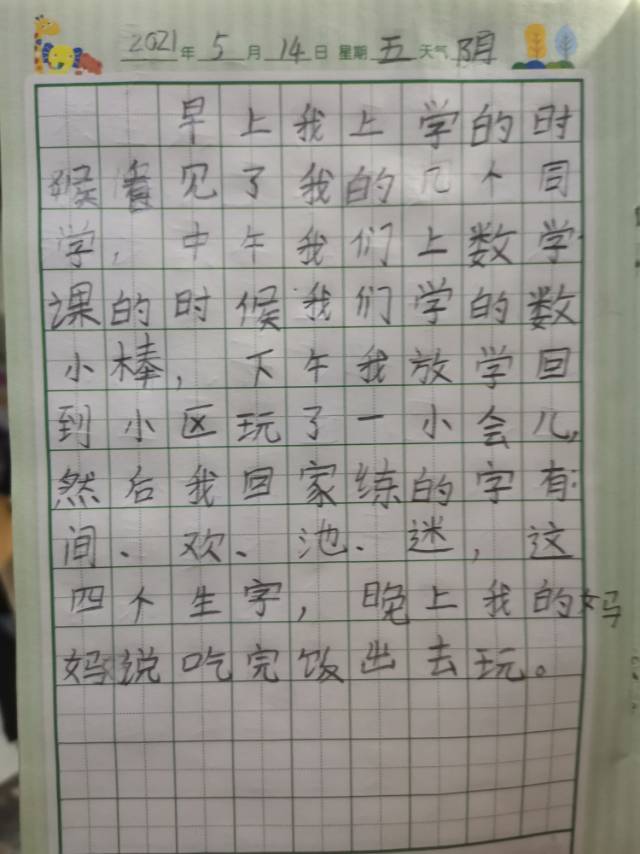 2021年5月14日 星期五 天气阴
早上我上学的时
候看见了我的几个同
学，中午我们上数学
课的时候我们学的数
小棒，下午我放学回
到小区玩了一小会儿，
然后我回家练的字有：
间、欢、池、迷，这
四个生字，晚上我的妈
妈说吃完饭出去玩。